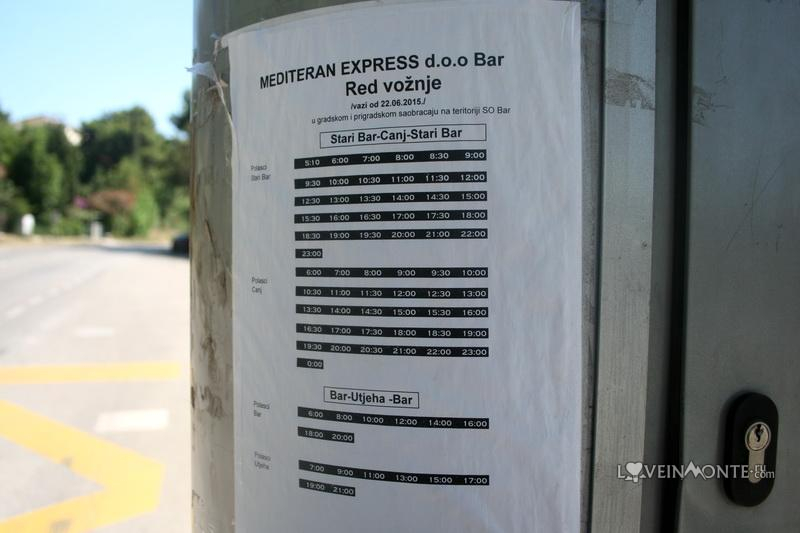 MEDITERAN EXPRESS d.o.o Bar
Red vožnje
/vazi od 22.06.2015./
u gradskom i prigradskom saobracaju na teritoriji SO Bar
Stari Bar-Canj-Stari Bar
Polasci
Stari Bar
5:10 6:00 7:00 8:00 8:30 9:00
9:30 10:00 10:30 11:00 11:30 12:00
12:30 13:00 13:30 14:00 14:30 15:00
15:30 16:00 16:30 17:00 17:30 18:00
18:30 19:00 19:30 20:00 21:00 22:00
23:00
Polasci
Canj
6:00 7:00 8:00 9:00 9:30 10:00
10:30 11:00 11:30 12:00 12:30 13:00
13:30 14:00 14:30 15:00 15:30 16:00
16:30 17:00 17:30 18:00 18:30 19:00
19:30 20:00 20:30 21:00 22:00 23:00
0:00
Bar-Utjeha -Bar
Polasci
Bar
6:00 8:00 10:00 12:00 14:00 16:00
18:00 20:00
Polasci
Utjeha
7:00 9:00 11:00 13:00 15:00 17:00
19:00 21:00
LOVEINMONTE.com